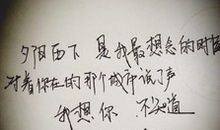 夕阳西下 是我最想念的时候
对着你在的那个城市说了声
我想你 不知道